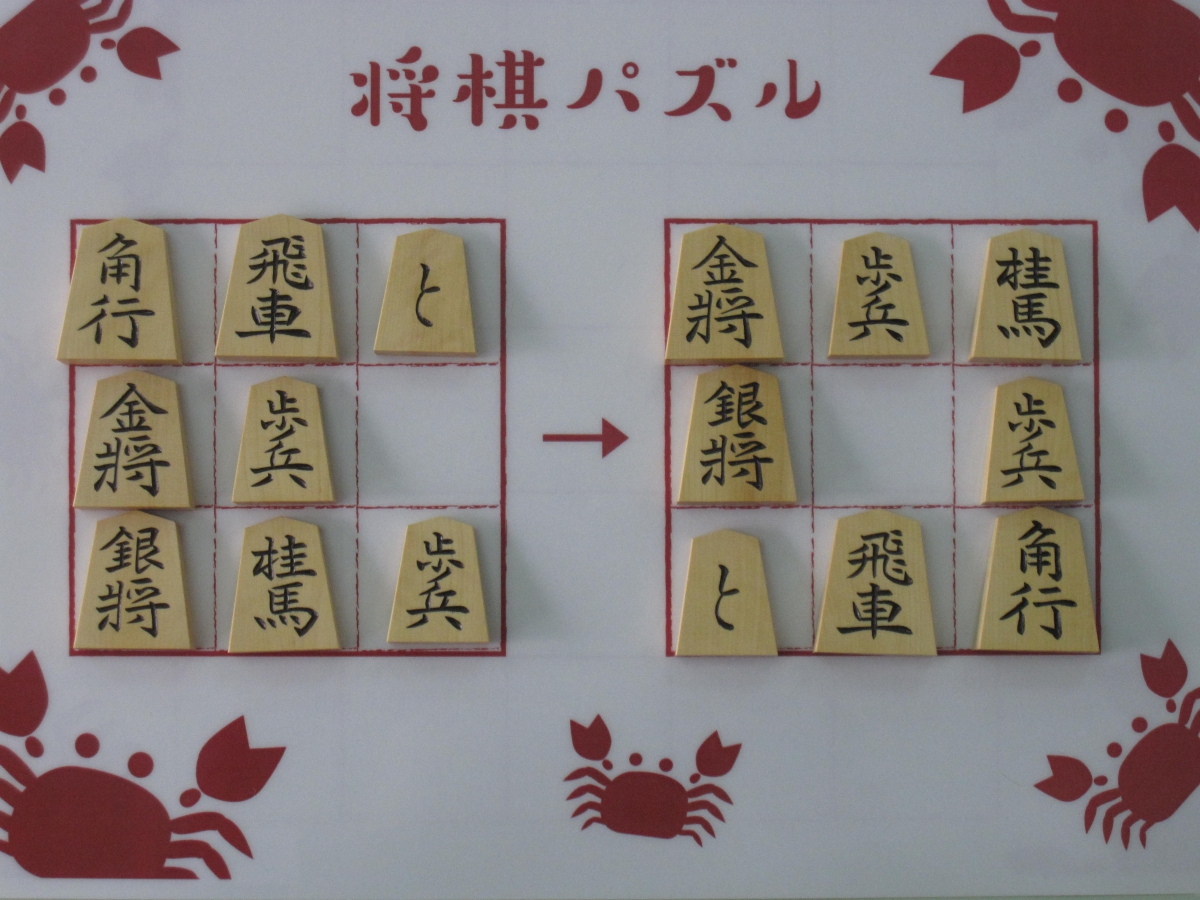 将棋パズル
角行 飛車 と
金将 歩兵
銀将 桂馬 歩兵
→
金将 歩兵 桂馬
銀将 歩兵
と 飛車 角行